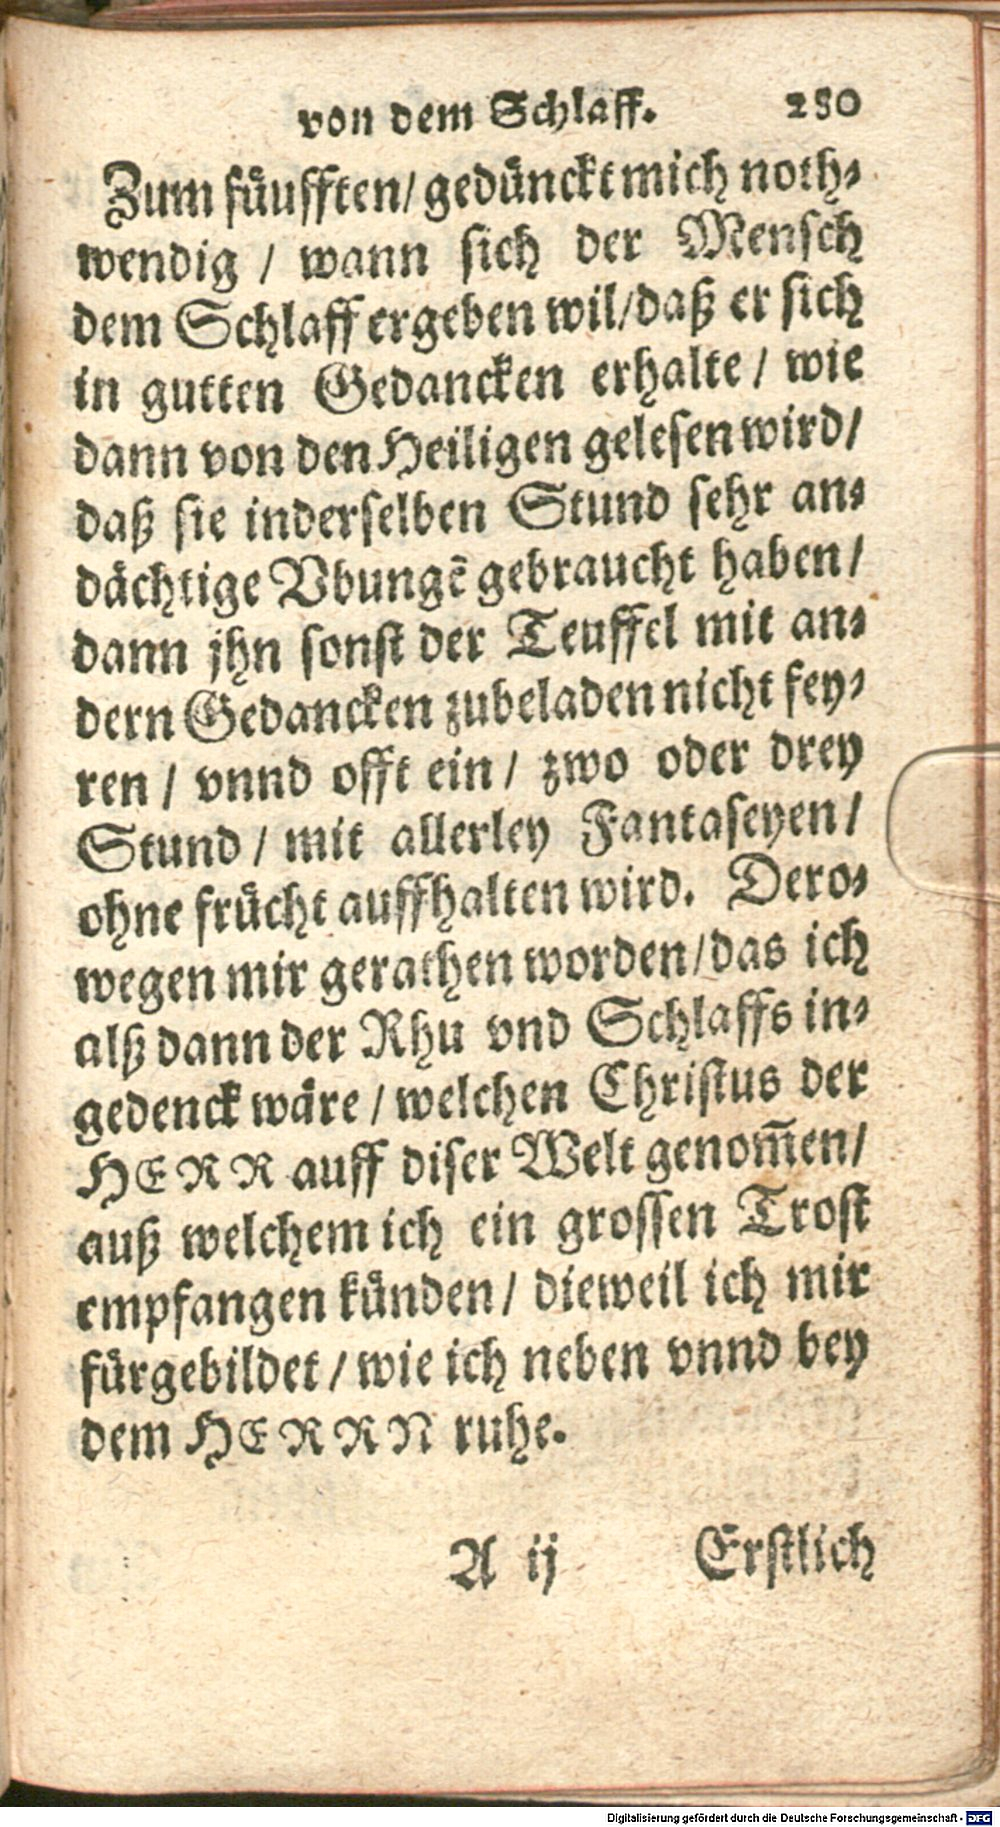 von dem Schlaff. 280
Zum fűufften/ gedünckt mich noth⸗
wendig / wann sich der Mensch
dem Schlaff ergeben wil/daß er sich
in gutten Gedancken erhalte / wie
dann von den Heiligen gelesen wird/
daß sie inderselben Stund sehr an⸗
dächtige Vbungẽ gebraucht haben/
dann jhn sonst der Teuffel mit an⸗
dern Gedancken zubeladen nicht fey⸗
ren / vnnd offt ein / zwo oder drey
Stund / mit allerley Fantaseyen/
ohne frücht auffhalten wird. Dero⸗
wegen mir gerathen worden/das ich
alß dann der Rhu vnd Schlaffs in⸗
gedenck wäre / welchen Christus der
HERR auff diser Welt genom̃en/
auß welchem ich ein grossen Trost
empfangen künden/ dieweil ich mir
fürgebildet / wie ich neben vnnd bey
dem HERRN ruhe.
A ij Erstlich
Digitalisierung gefördert durch die Deutsche Forschungsgemeinschaft - DFG